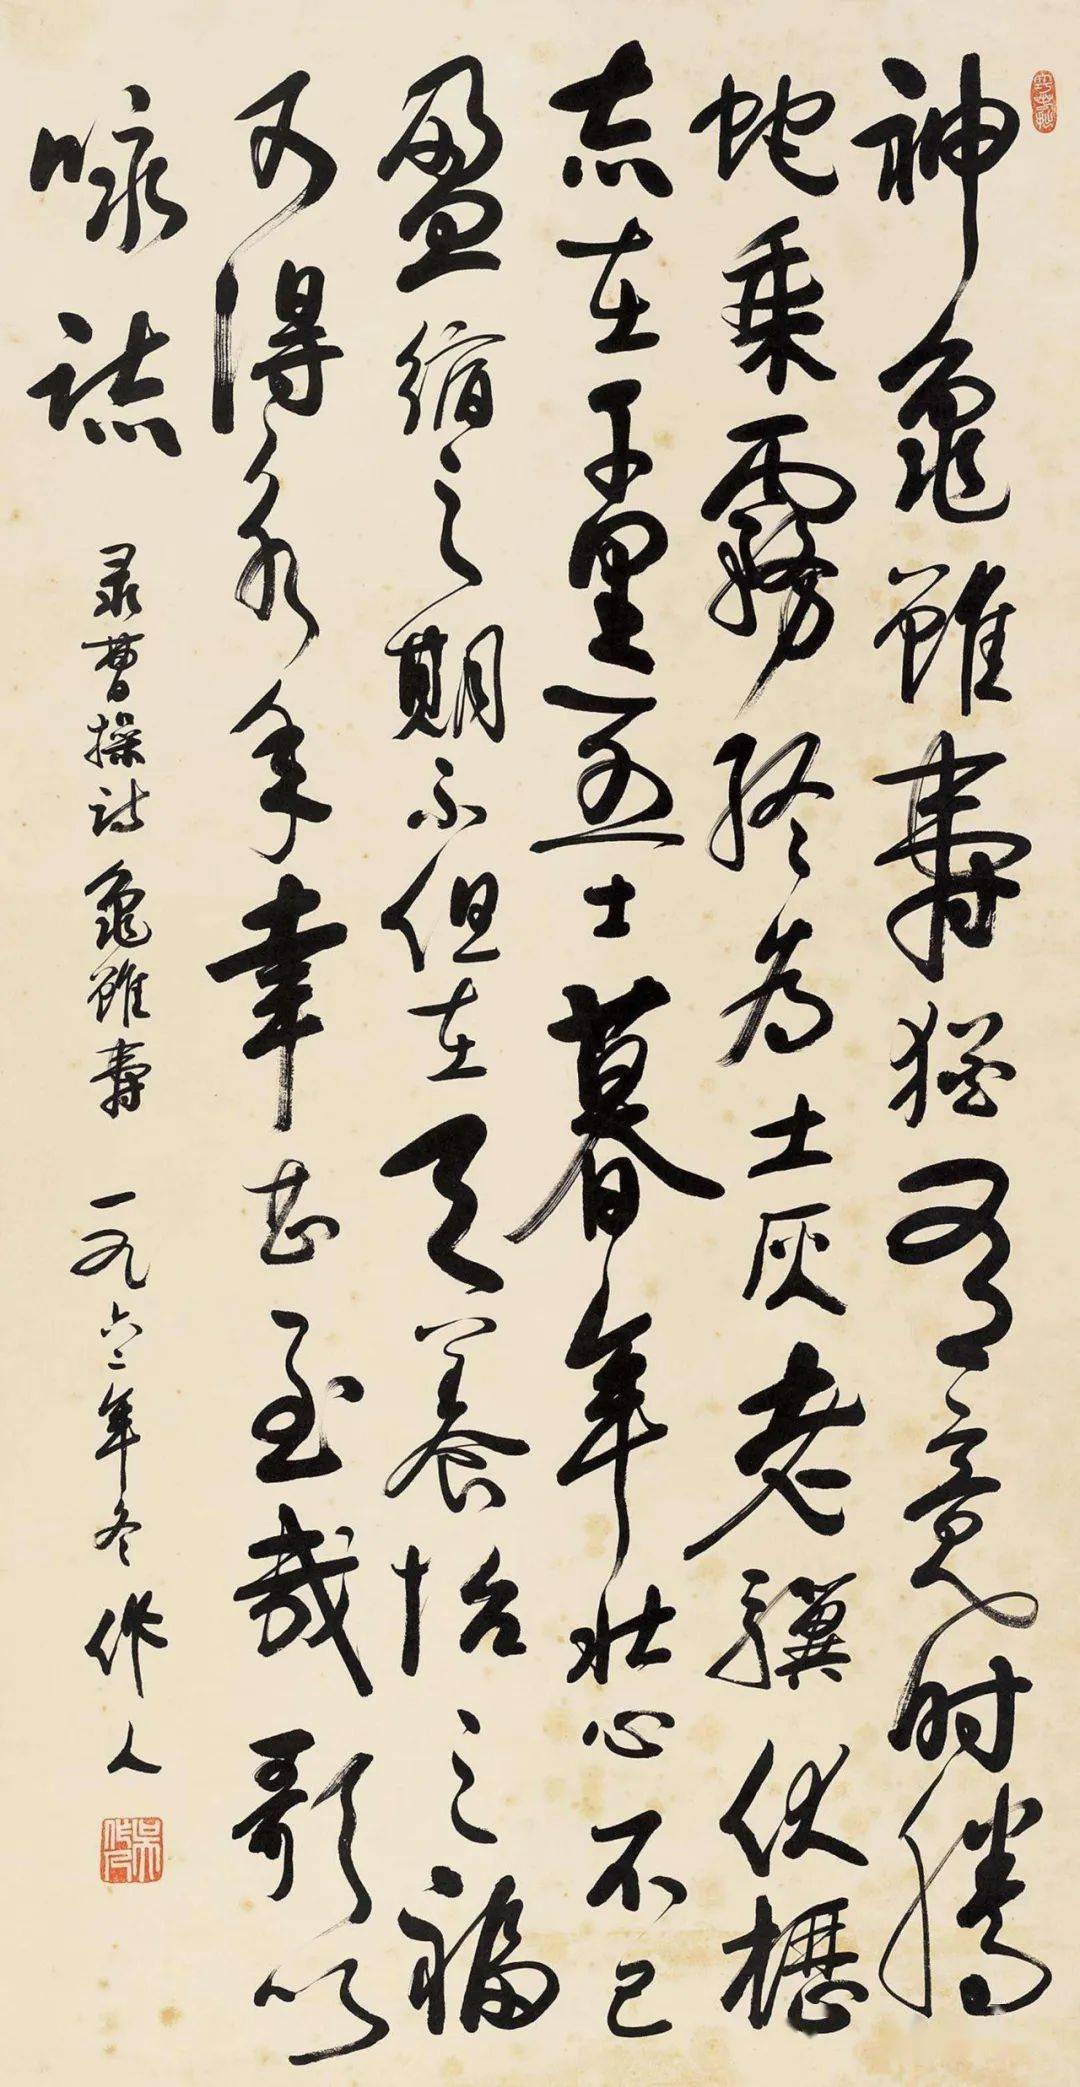 神龜雖壽猶有竟时騰
蛇乘霧終为土灰老驥伏櫪
志在千里烈士暮年壯心不已
盈縮之期不但在天養怡之福
可得永年幸甚至哉歌以
咏誌
录曹操诗龜雖壽 一九六二年冬 作人
吳作人